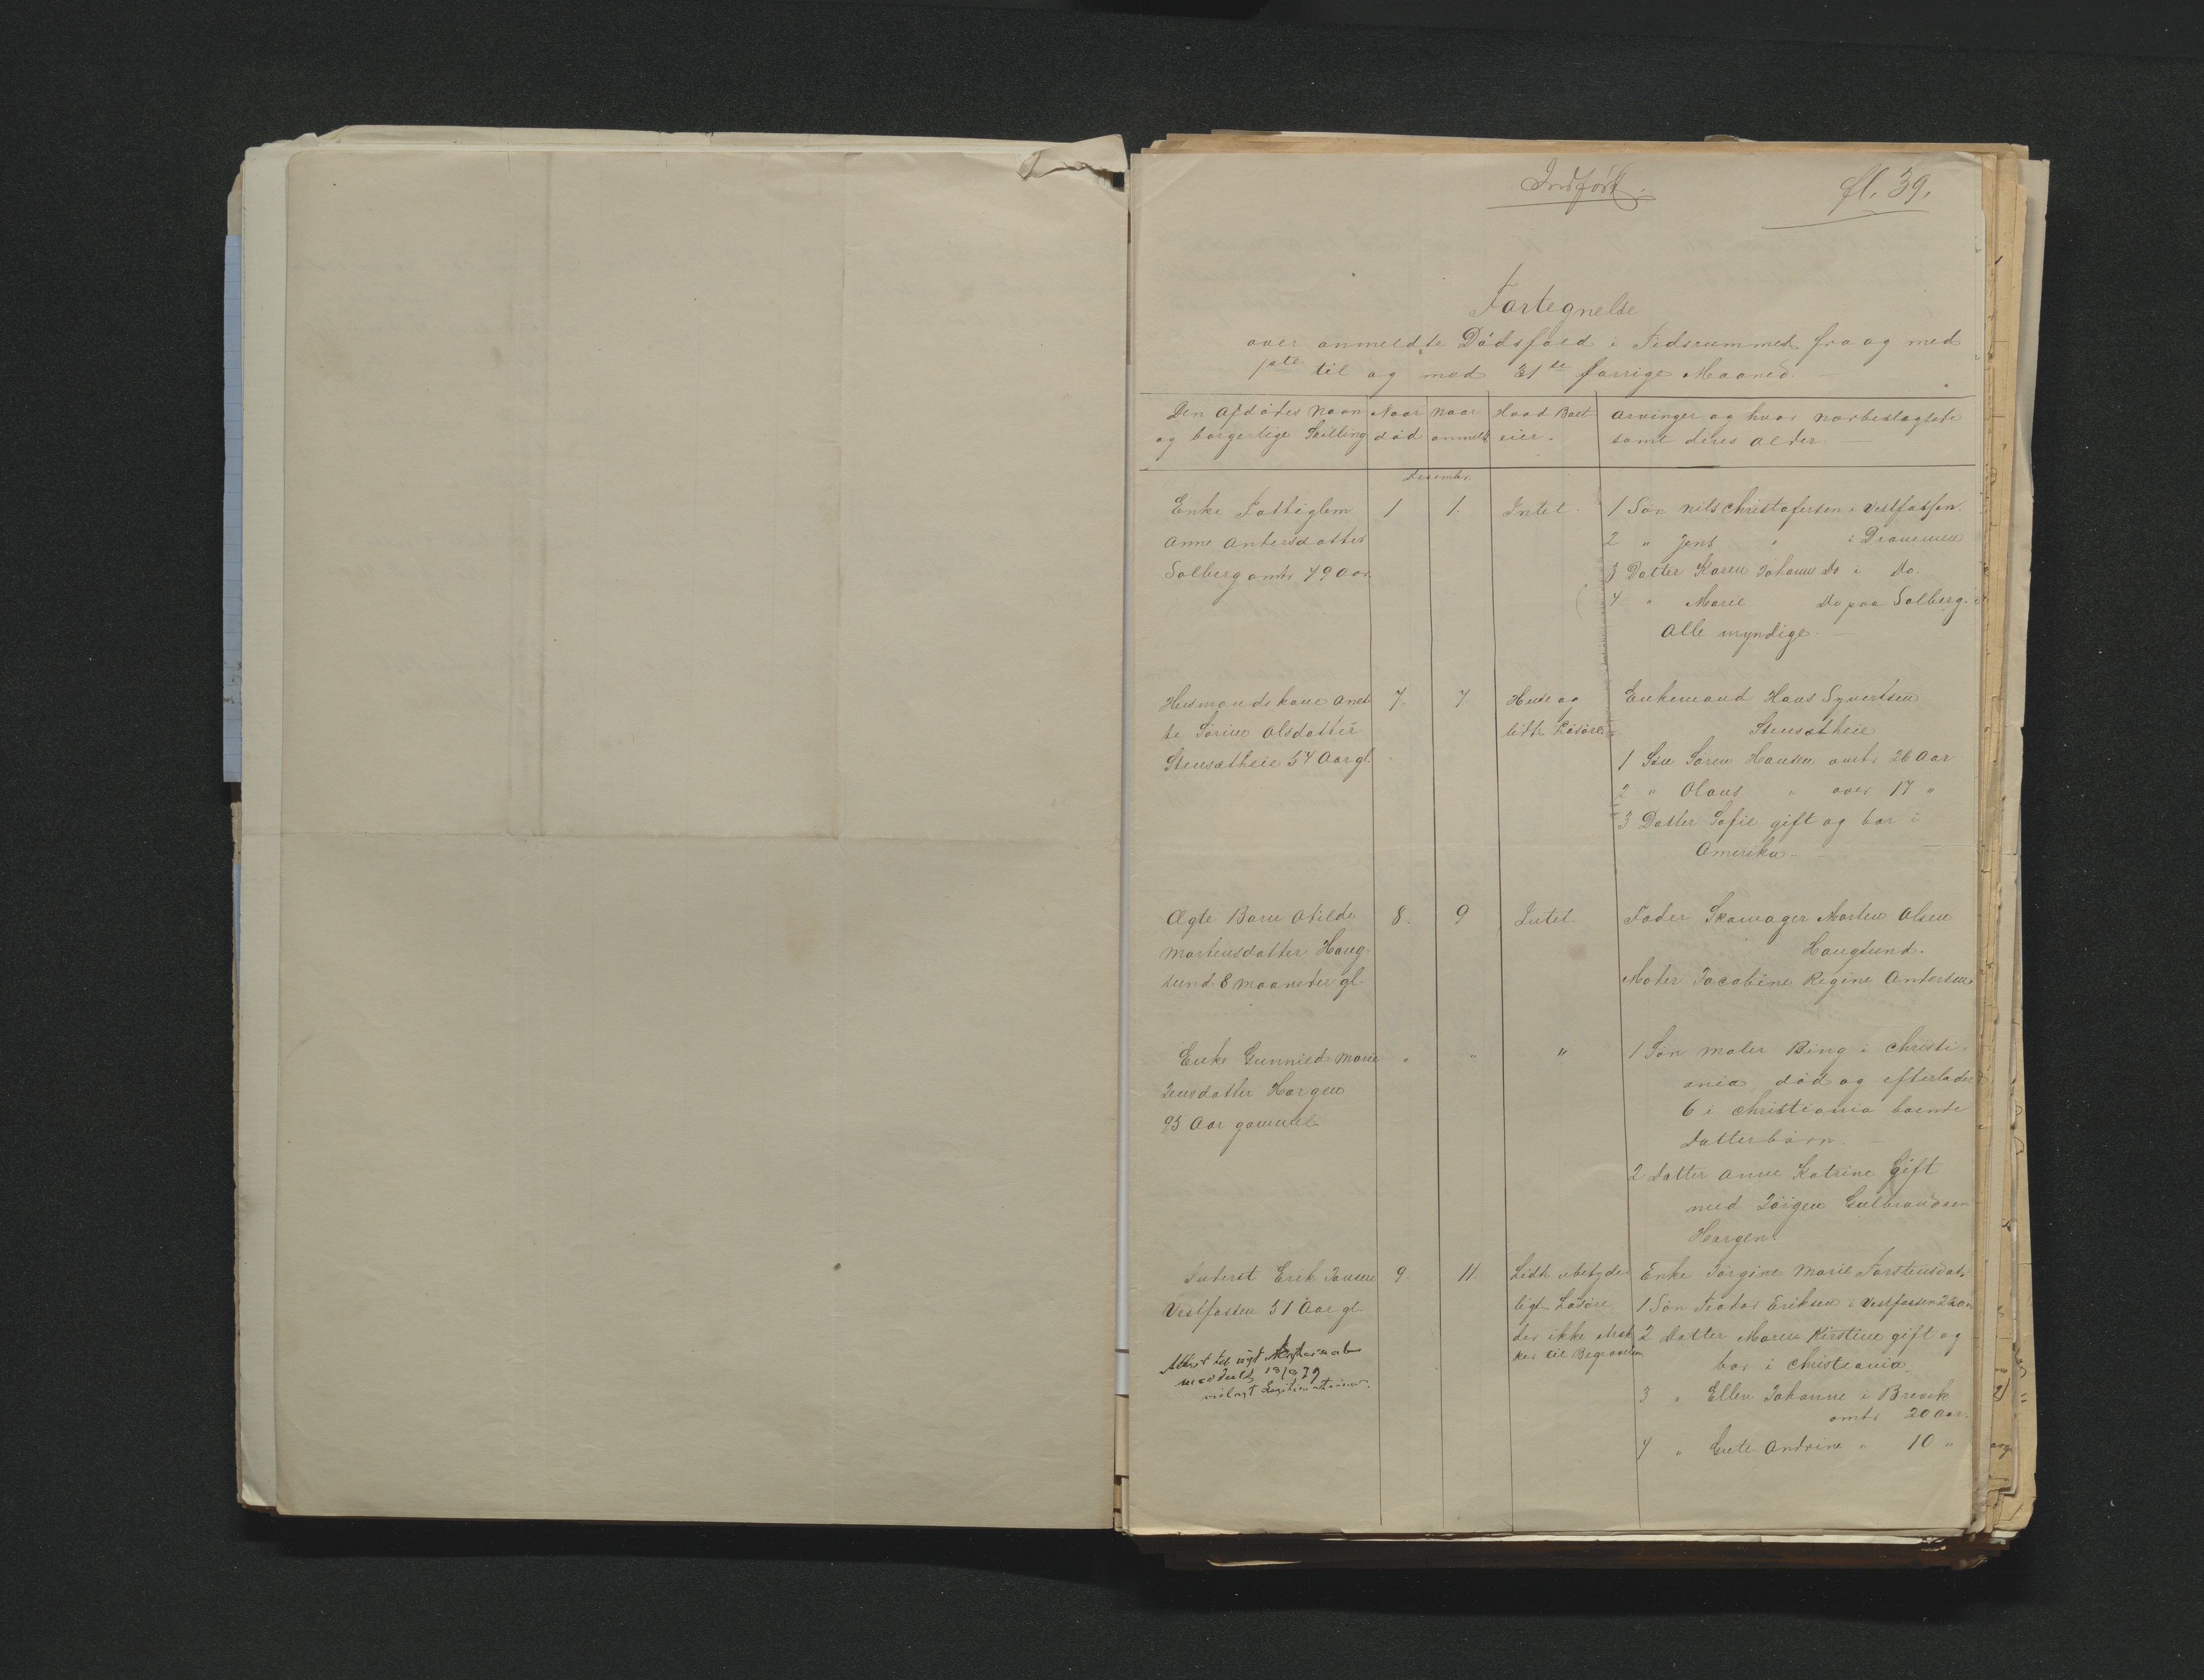 Indført.
fl. 39.
Fortegnelse
over anmeldte Dødsfald i Tidsrummet fra og med
1ste til og med 31te forrige Maaned. —
Den Afdødes Navn Naar naar Hvad Boet Arvinger og hvor nærbeslægtede
og borgerlige Stilling død anmelt eier. samt deres Alder. —
Desembr.
Enke Fattiglem 1 1. Intet. 1 Søn Nils Christofersen i Vestfossen.
Anne Andersdatter 2 " Jens " i Drammen
Solberg omtr 79 Aar. 3 Datter Karen Johanne Do i Do.
4 " Marie Do paa Solberg.
Alle myndige. —
Husmandskone Anet- 7. 7. Huse og Enkemand Hans Syvertsen
te Sørine Olsdatter lidt Løsøre. Stensetheie
Stensetheie 54 Aar gl. 1 Søn Søren Hansen omtr 26 Aar
2 " Olaus " over 17 "
3 Datter Sofie gift og bor i
Amerika. —
Ægte Barn Otilde 8. 9 Intet Fader Skomager Morten Olsen
Mortensdatter Haug- Hauglund.
sund 8 maaneder gl. Moder Jacobine Regine Andersen
Enke Gunnild Marie " " " 1 Søn maler Bing i Christi-
Jensdatter Horgen ania, død og efterlader
95 Aar gammel 6 i Christiania boende
Datterbørn. —
2 Datter Anne Katrine gift
med Jørgen Gulbrandsen
Horgen.
Inderst Erik Jansen 9 11. Lidt ubetyde- Enke Jørgine Marie Torstensdat.
Vestfossen 51 Aar gl. ligt Løsøre 1 Søn Teodor Eriksen i Vestfossen 22 Aar
der ikke stræk 2 Datter Maren Kirstine gift og
ker til Begravelsen bor i Christiania.
Attest til
meddeelt 18/3 79
3 " Ellen Johanne i Brevik
omtr 20 Aar.
4 " Grete Andrine " 10 "